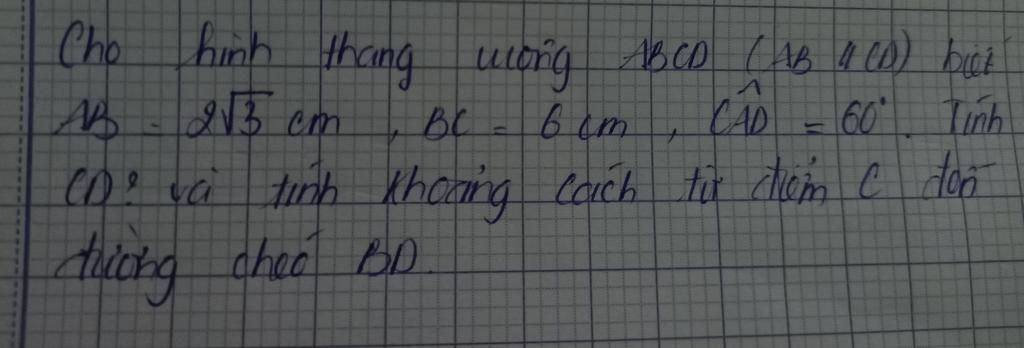 Cho hình thang vuông ABCD (AB // CD) biết
AB = 2√3 cm, BC = 6 cm, CÂD = 60°. Tính
CD? và tính khoảng cách từ điểm C đến
đường chéo BD.